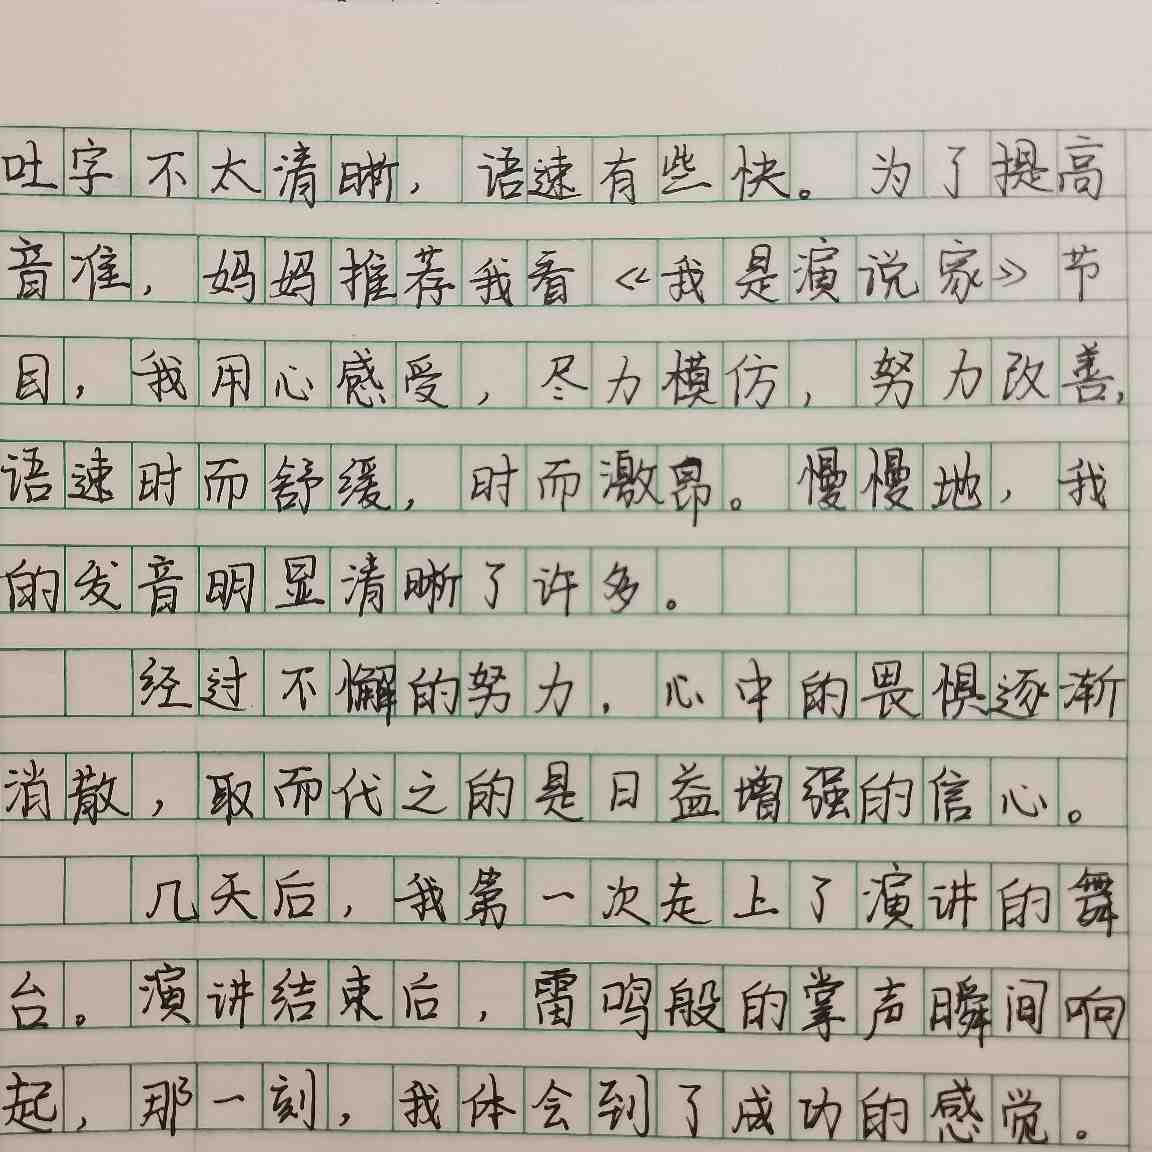 吐字不太清晰，语速有些快。为了提高
音准，妈妈推荐我看《我是演说家》节
目，我用心感受，尽力模仿，努力改善，
语速时而舒缓，时而激昂。慢慢地，我
的发音明显清晰了许多。
经过不懈的努力，心中的畏惧逐渐
消散，取而代之的是日益增强的信心。
几天后，我第一次走上了演讲的舞
台。演讲结束后，雷鸣般的掌声瞬间响
起，那一刻，我体会到了成功的感觉。